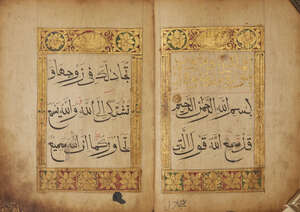 بسم الله الرحمن الرحيم
قد سمع الله قول التي
تجادلك في زوجها و
تشتكي إلى الله والله يسمع
تحاوركما إن الله سميع